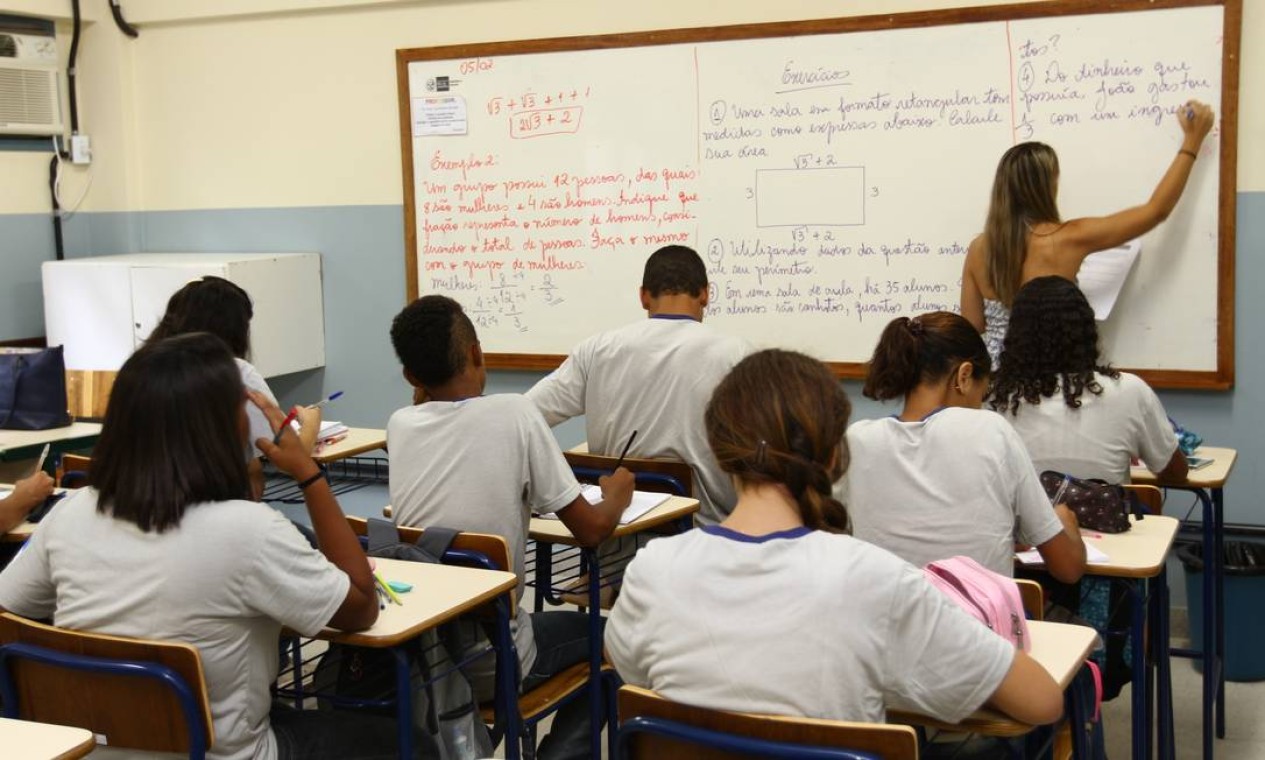 05/02
√3 + √3 + 1 + 1
2√3 + 2
Exemplo 2:
Um grupo possui 12 pessoas, das quais
8 são mulheres e 4 são homens. Indique que
fração representa o número de homens, consi-
derando o total de pessoas. Faça o mesmo
com o grupo de mulheres.
Mulheres: 8 ÷4 / 12 ÷4 = 2 / 3
4 ÷4 / 12 ÷4 = 1 / 3
Exercícios
① Uma sala em formato retangular tem
medidas como expressas abaixo. Calcule
sua área.
√3 + 2
3 3
√3 + 2
② Utilizando dados da questão
seu perímetro.
③ Em uma sala de aula, há 35 alunos.
dos alunos são canhotos, quantos alunos
tos?
④ Do dinheiro que
possuía, João gastou
1/3 com um ingre